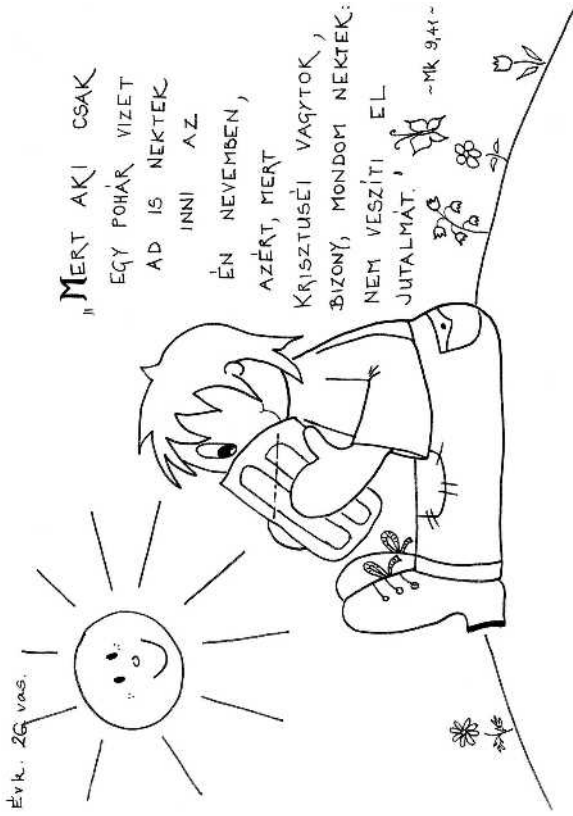 Évk. 26. vas.
„MERT AKI CSAK
EGY POHÁR VIZET
AD IS NEKTEK
INNI AZ
ÉN NEVEMBEN,
AZÉRT, MERT
KRISZTUSÉI VAGYTOK,
BIZONY, MONDOM NEKTEK:
NEM VESZÍTI EL
JUTALMÁT.”
~MK 9,41~